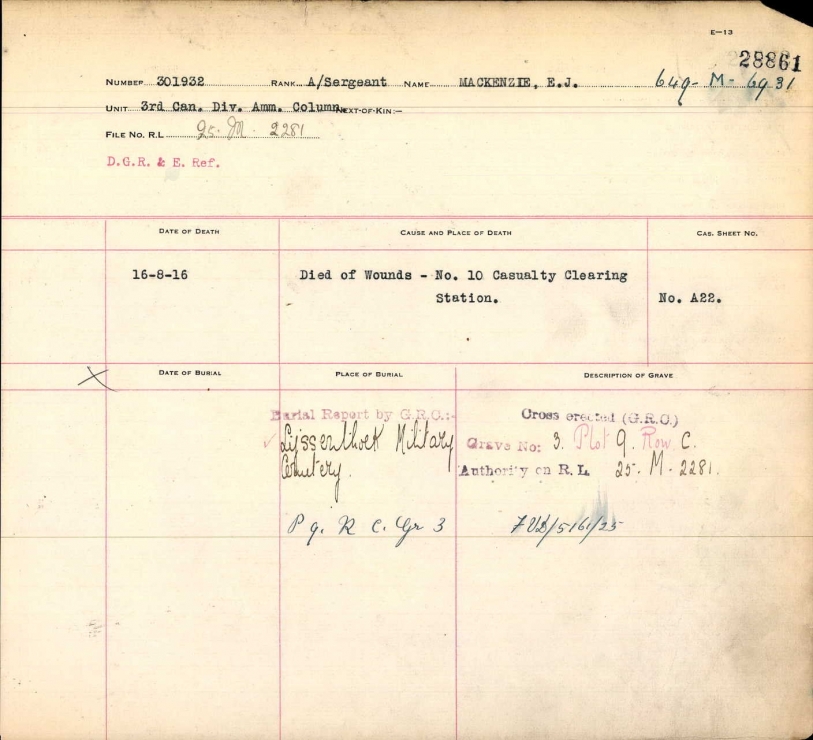 E-13
28861
NUMBER 301932 RANK A/Sergeant NAME MACKENZIE, E.J. 649-M-6931
UNIT 3rd Can. Div. Amm. Column. NEXT-OF-KIN:-
FILE NO. R.L. 25. M. 2281
D.G.R. & E. Ref.
DATE OF DEATH CAUSE AND PLACE OF DEATH CAS. SHEET NO.
16-8-16 Died of Wounds - No. 10 Casualty Clearing
Station. No. A22.
DATE OF BURIAL PLACE OF BURIAL DESCRIPTION OF GRAVE
Burial Report by G.R.O.:- Cross erected (G.R.O.)
Lijssenthoek Military Grave No: 3. Plot 9. Row C.
Cemetery. Authority on R.L. 25. M. 2281.
P 9. R C. Gr 3